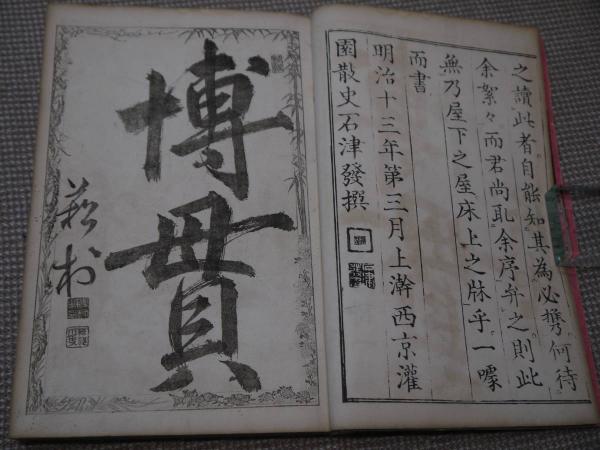 之讀此者自能知其為必携何待
余絮々而君尚耴余序弁之則此
無乃屋下之屋床上之牀乎一噱
而書
明治十三年第三月上澣西京灌
園散史石津發撰
博貫